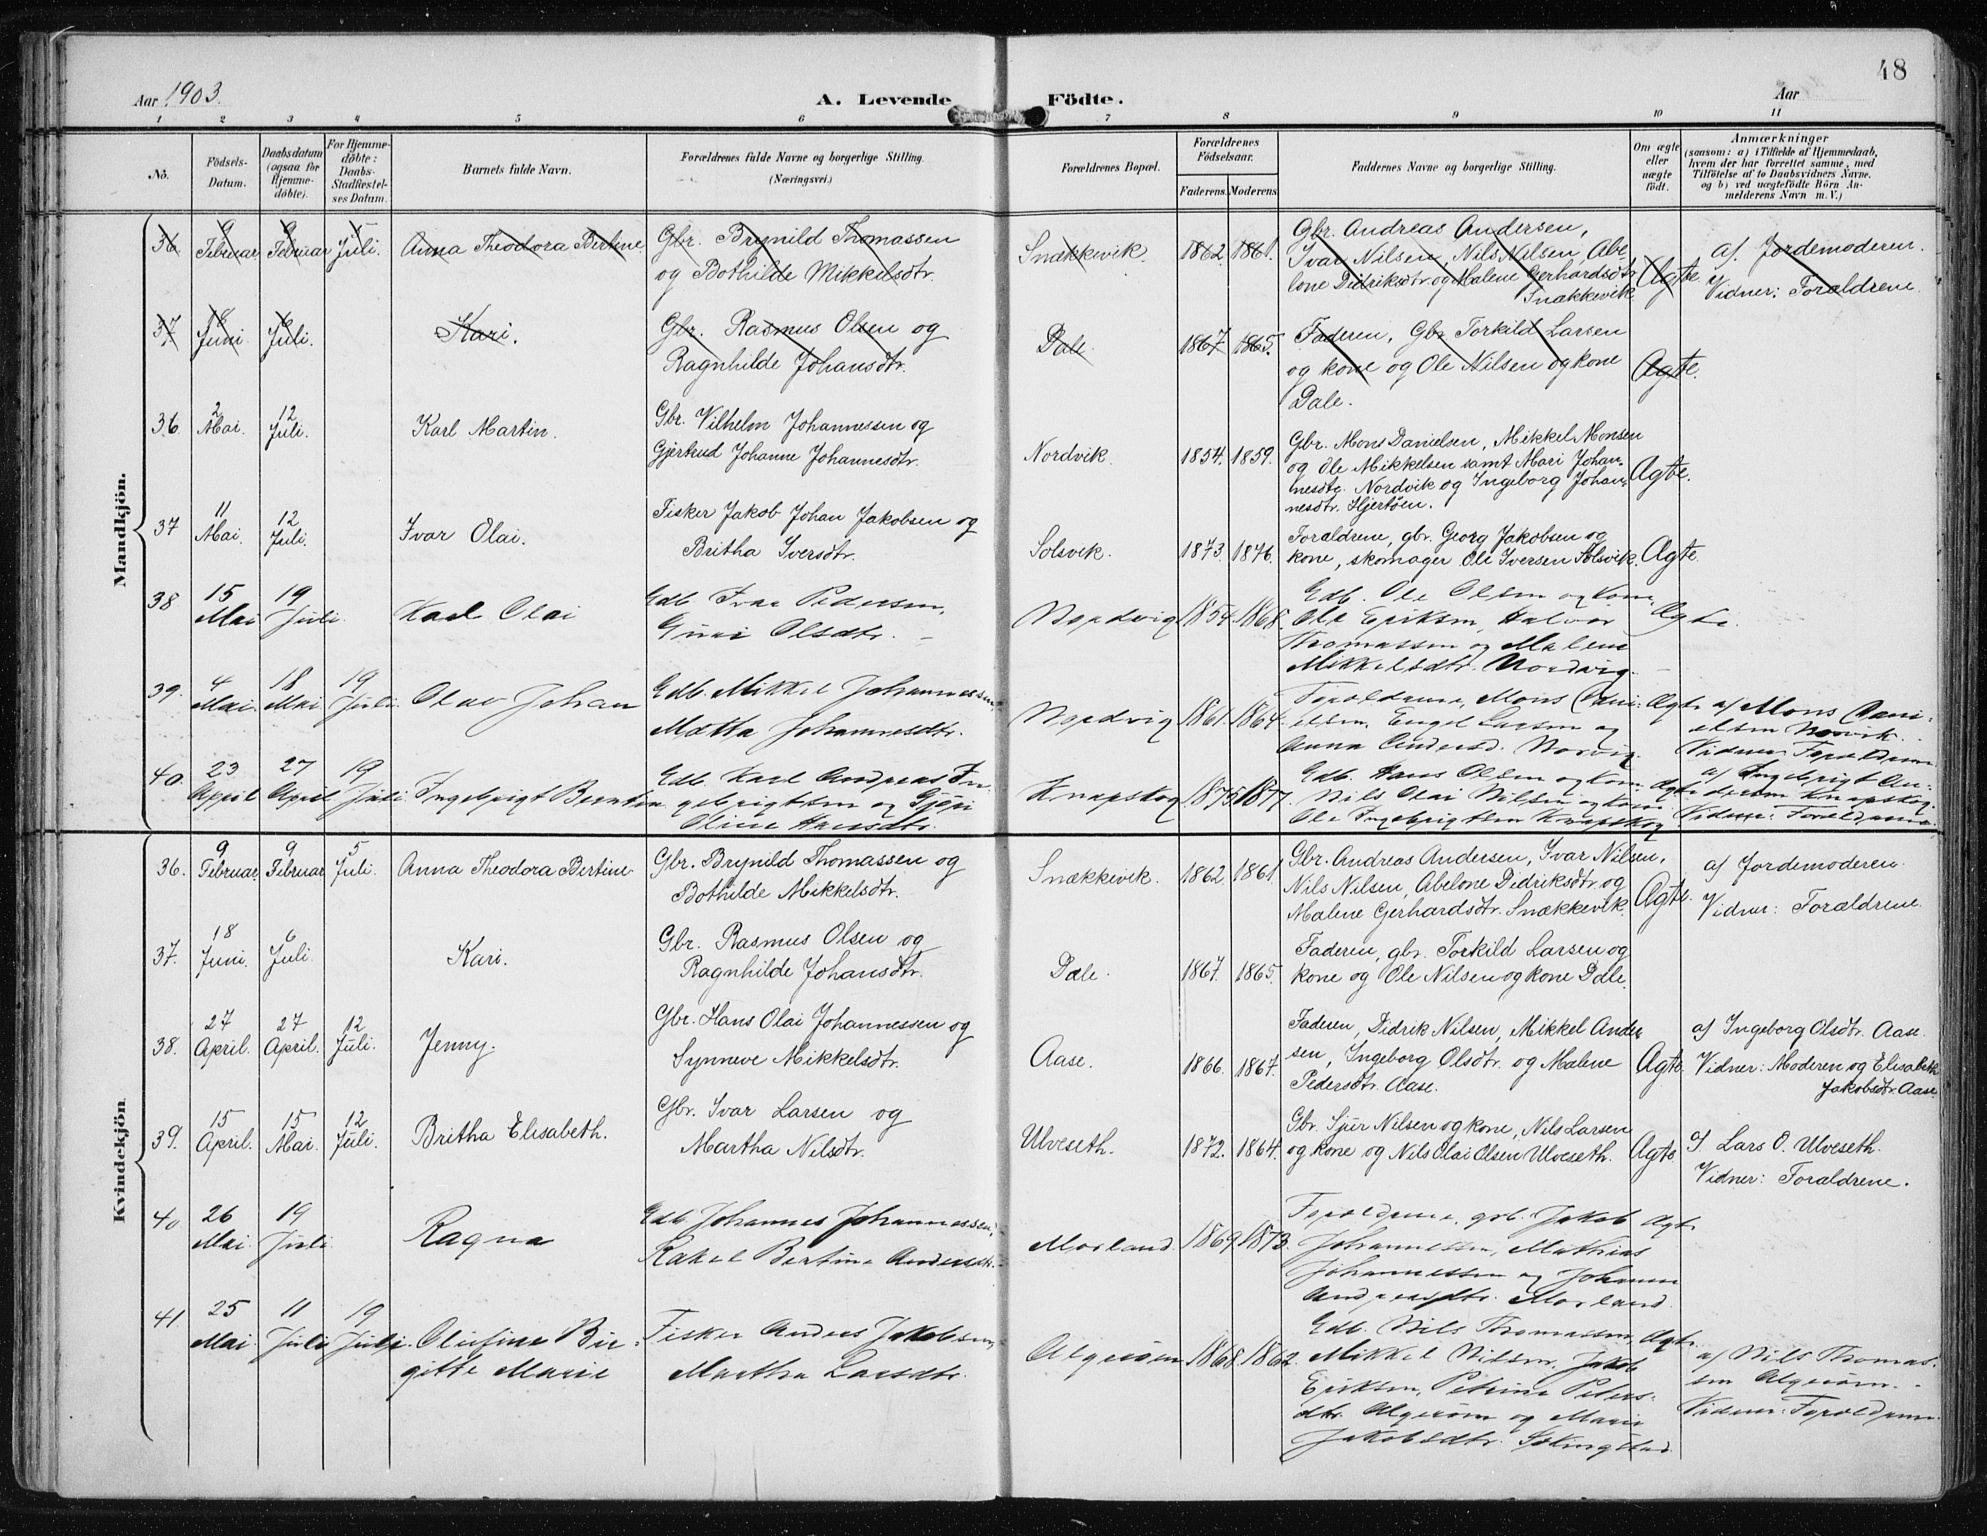 48
Aar 1903. A. Levende Födte. Aar
1 2 3 4 5 6 7 8 9 10 11
No.
Födsels-Datum.
Daabsdatum (ogsaa for Hjemme-döbte).
For Hjemme-döbte: Daabs-Stadfæstel-ses Datum.
Barnets fulde Navn.
Forældrenes fulde Navne og borgerlige Stilling.
(Næringsvei.)
Forældrenes Bopæl.
Forældrenes Födselsaar.
Faderens. Moderens.
Faddernes Navne og borgerlige Stilling.
Om ægte eller uægte födt.
Anmærkninger
(saasom: a) i Tilfælde af Hjemmedaab,
hvem der har forrettet samme, med
Tilföielse af to Daabsvidners Navne.
og b) ved uægtefödte Börn An-
melderens Navn m. V.)
Mandkjön.
36 9 Februar 9 Februar 5 Juli. Anna Theodora Bertine Gbr. Brynild Thomassen
og Bothilde Mikkelsdtr.
Snækkevik. 1862 1861. Gbr. Andreas Andersen,
Ivar Nilsen, Nils Nilsen, Abe-
lone Didriksdtr og Malene Gerhardsdtr
Snækkevik Ægte. af Jordemoderen.
Vidner: Forældrene.
37 18 Juni 6 Juli. Kari. Gbr. Rasmus Olsen og
Ragnhilde Johansdtr.
Dale. 1867 1865. Faderen, Gbr Torkild Larsen
og kone og Ole Nilsen og kone
Dale. Ægte.
36. 2 Mai. 12 Juli. Karl Martin. Gbr. Vilhelm Johannessen og
Gjertrud Johanne Johannesdtr.
Nordvik. 1854. 1859. Gbr. Mons Danielsen, Mikkel Monsen
og Ole Mikkelsen samt Mari Johan-
nesdtr. Nordvik og Ingeborg Johan-
nesdtr. Hjertøen. Ægte.
37 11 Mai. 12 Juli. Ivar Olai. Fisker Jakob Johan Jakobsen og
Britha Iversdtr.
Solsvik. 1873. 1876. Forældrene, gbr. Georg Jakobsen og
kone, skomager Ole Iversen Solsvik. Ægte.
38 15 Mai 19 Juli. Karl Olai Gdb. Ivar Pedersen,
Guri Olsdtr.
Nordvig 1854. 1868. Gdb. Ole Olsen og kone,
Ole Eriksen, Halvor
Thomassen og Malene
Mikkelsdtr. Nordvig. Ægte.
39. 4 Mai. 18 Mai 19 Juli. Olav Johan Gdb. Mikkel Johannessen,
Matta Johannesdtr.
Nordvig 1861. 1864. Forældrene, Mons Dani-
elsen, Engel Larsen og
Anna Andersd. Norvig. Ægte af Mons Dani-
elsen Norvik.
Vidner: Forældrene
40. 23 April 27 April 19 Juli. Ingebrigt Berntin Gdb. Karl Andreas In-
gebrigtsen og Gjøri
Oline Hansdtr.
Knapskog 1875 1877. Gdb. Hans Olsen og kone
Nils Olai Nilsen og kone
Ole Ingebrigtsen Knapskog Ægte af Ingebrigt An-
dersen Knapskog.
Vidner: Forældrene
Kvindekjön
36. 9 Februar. 9 Februar 5 Juli. Anna Theodora Bertine Gbr. Brynild Thomassen og
Bothilde Mikkelsdtr.
Snækkevik. 1862. 1861. Gbr. Andreas Andersen, Ivar Nilsen,
Nils Nilsen, Abelone Didriksdtr og
Malene Gerhardsdtr. Snækkevik. Ægte. af Jordemoderen.
Vidner: Forældrene.
37. 18 Juni. 6 Juli. Kari. Gbr. Rasmus Olsen og
Ragnhilde Johansdtr.
Dale. 1867. 1865. Faderen, gbr. Torkild Larsen og
kone og Ole Nilsen og kone Dale.
38. 27 April. 27 April. 12 Juli. Jenny. Gbr. Hans Olai Johannessen og
Synneve Mikkelsdtr.
Aase. 1866. 1867. Faderen, Didrik Nilsen, Mikkel Ander
sen, Ingeborg Olsdtr. og Malene
Pedersdtr. Aase. Ægte. af Ingeborg Olsdtr. Aase.
Vidner: Moderen og Elisabeth
Jakobsdtr. Aase.
39. 15 April. 15 Mai. 12 Juli. Britha Elisabeth. Gbr. Ivar Larsen og
Martha Nilsdtr.
Ulveseth. 1872. 1864. Gbr. Sjur Nilsen og kone, Nils Larsen
og kone og Nils Olai Olsen Ulveseth. Ægte. af Lars O. Ulveseth.
Vidner: Forældrene.
40 26 Mai. 19 Juli Ragna Gdb. Johannes Johannessen,
Rakel Bertine Andersdtr.
Morland. 1869. 1873. Forældrene, gbr. Jakob
Johannessen, Mathias
Johannessen og Johanne
Andreasdtr. Morland. Ægte
41 25 Mai. 11 Juli 19 Juli. Olufine Bir-
gitte Marie
Fisker Anders Jakobsen,
Martha Larsdtr.
Algerøen 1868. 1862. Gdb. Nils Thomassen,
Mikkel Nilsen, Jakob
Eriksen, Petrine Peters-
dtr. Algerøen og Marie
Jakobsdtr. Ægte. af Nils Thomas-
sen Algerøen.
Vidner: Forældrene.